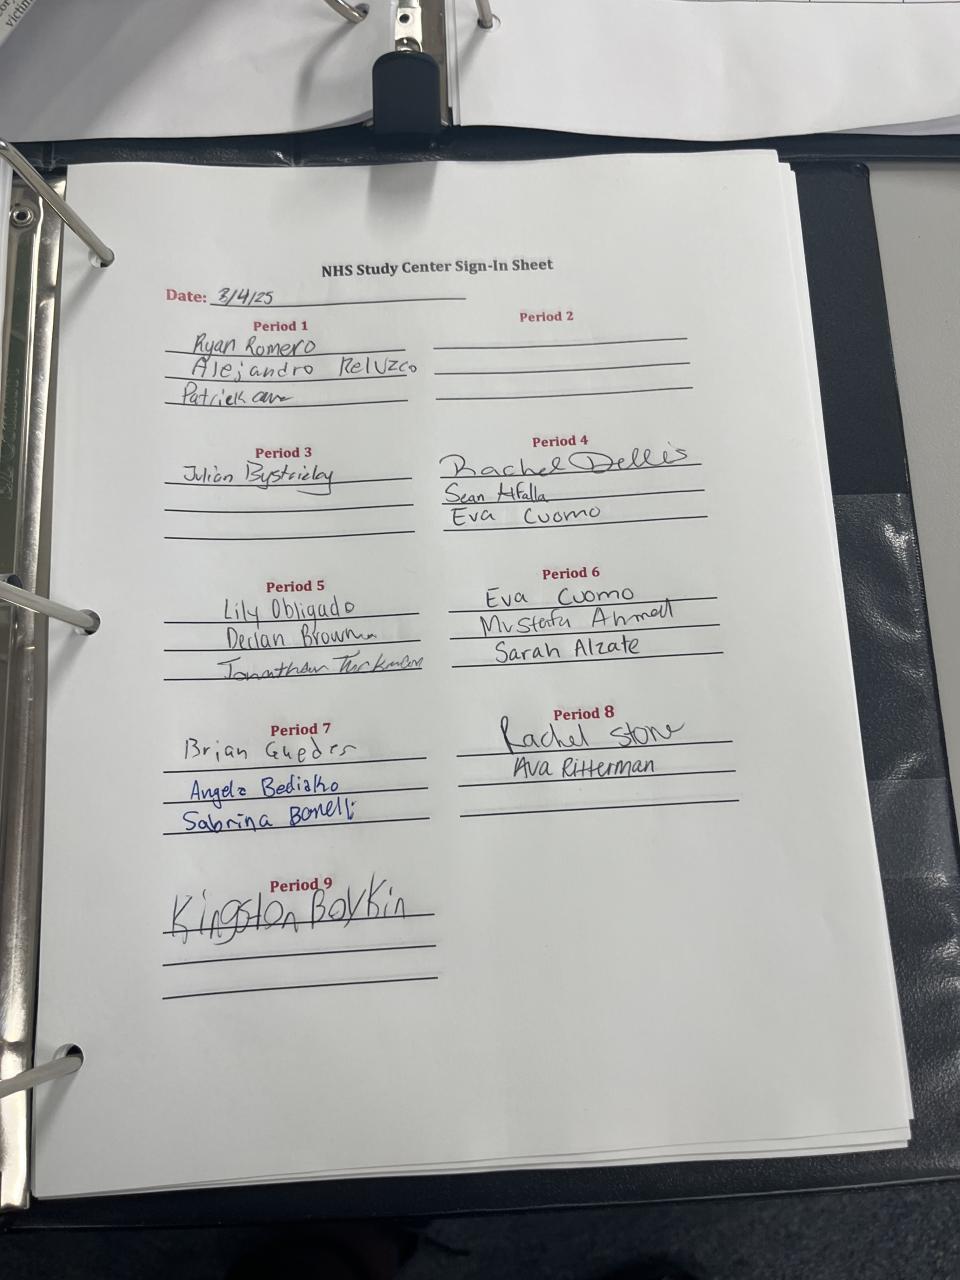 victim
NHS Study Center Sign-In Sheet
Date: 3/4/25
Period 1
Ryan Romero
Alejandro Reluzco
Patrick
Period 2
Period 3
Julian
Period 4
Rachel Dellis
Sean
Eva Cuomo
Period 5
Lily Obligado
Declan
Jonathan
Period 6
Eva Cuomo
Mustafa Ahmed
Sarah Alzate
Period 7
Brian Guedes
Angela Bediako
Sabrina Bonelli
Period 8
Rachel Stone
Ava Ritterman
Period 9
Kingston Boykin